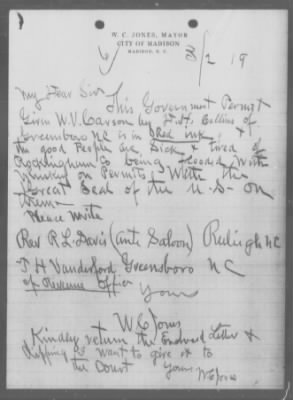 W. C. JONES, MAYOR
CITY OF MADISON
MADISON, N. C.
3/2 19
My Dear Sir This Government Permit
Given W. V. Carson by J. H. Collins of
Greensboro NC is in Red ink, &
the good People are Sick & tired of
Rockingham Co being flooded with
Whiskey on Permits With the
Great Seal of the U.S. on
them
Please write
Rev R L Davis (Anti Saloon) Raleigh NC
J H Vanderford Greensboro NC
of Revenue Officer
Yours
W C Jones
Kindly return the Enclosed Letter &
clipping I want to give it to
the Court Yours W C Jones